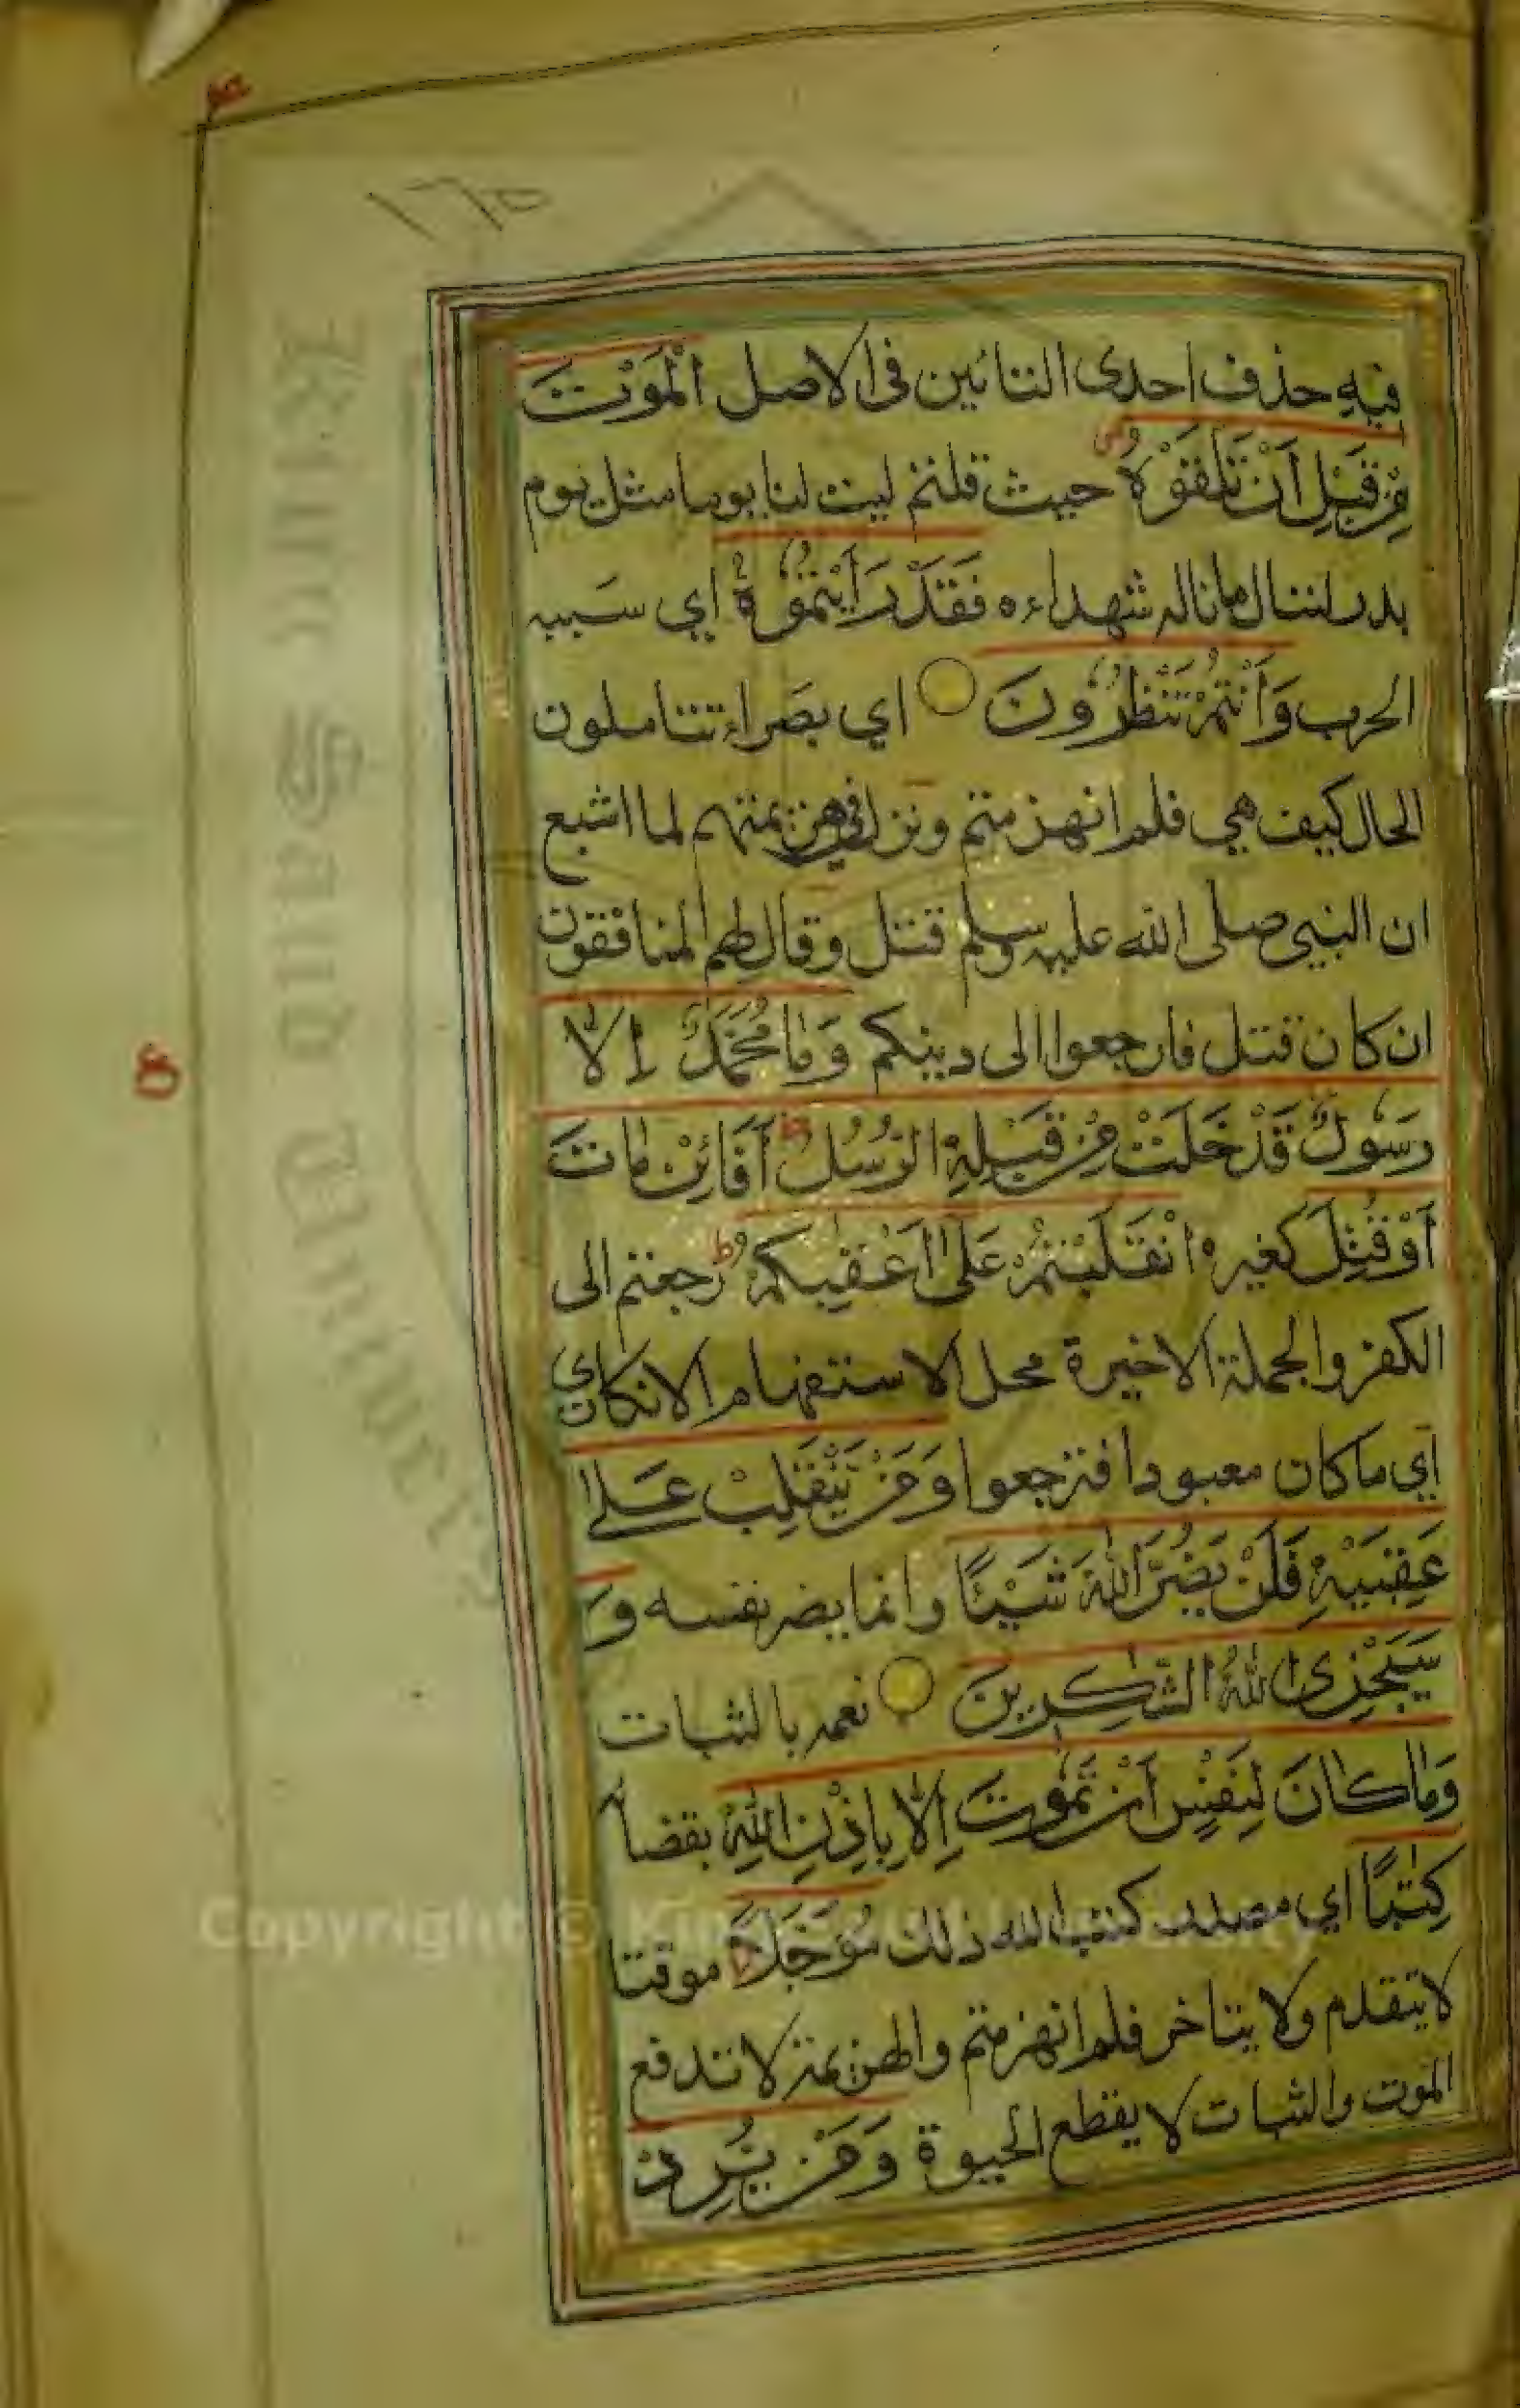 ١٦٥
فيهِ حذف احدى التائين فى الاصل الْمَوْتَ
مِنْ قَبْلِ اَنْ تَلْقَوْهُ حيث قلتم ليت لنا يوما مثل يوم
بدر لننال ما ناله شهداءه فَقَدْ رَاَيْتُمُوْهُ اي سَببه
الحرب وَاَنْتُمْ تَنْظُرُوْنَ اي بصَراء تتاملون
الحال كيف هي فلم انهزمتم ونزل في هزيمتهم لما اشيع
ان النبي صلى الله عليه وسلم قتل وقال لهم المنافقون
ان كان قتل فارجعوا الى دينكم وَمَا مُحَمَّدٌ اِلَّا
رَسُوْلٌ قَدْ خَلَتْ مِنْ قَبْلِهِ الرُّسُلُ ط اَفَائِنْ مَّاتَ
اَوْ قُتِلَ كغيره انْقَلَبْتُمْ عَلٰى اَعْقٰبِكُمْ ط رجعتم الى
الكفر والجملة الاخيرة محل الاستفهام الانكارى
اي ما كان معبودا فترجعوا وَمَنْ يَّنْقَلِبْ عَلٰى
عَقِبَيْهِ فَلَنْ يَّضُرَّ اللّٰهَ شَيْئًا وانما يضر نفسه وَ
سَيَجْزِى اللّٰهُ الشّٰكِرِيْنَ نعمه بالثبات
وَمَا كَانَ لِنَفْسٍ اَنْ تَمُوْتَ اِلَّا بِاِذْنِ اللّٰهِ بقضائه
كِتٰبًا اي مصدر كتب الله ذلك مُؤَجَّلًا موقتا
لا يتقدم ولا يتاخر فلم انهزمتم والهزيمة لا تدفع
الموت والثبات لا يقطع الحيوة وَمَنْ يُّرِدْ
Copyright © King Saud University
King Saud University